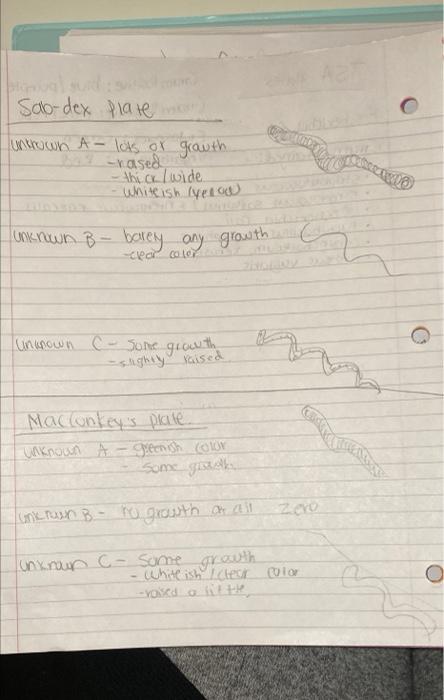 Sab-dex plate
unknown A - lots of growth
- raised
- thick/wide
- whiteish (yellow)
unknown B - barely any growth
- clear color
unknown C - Some growth
- slightly raised
MacConkey's plate
unknown A - greenish color
- Some growth
unknown B - no growth at all zero
unknown C - Some growth
- Whiteish/clear color
- raised a little